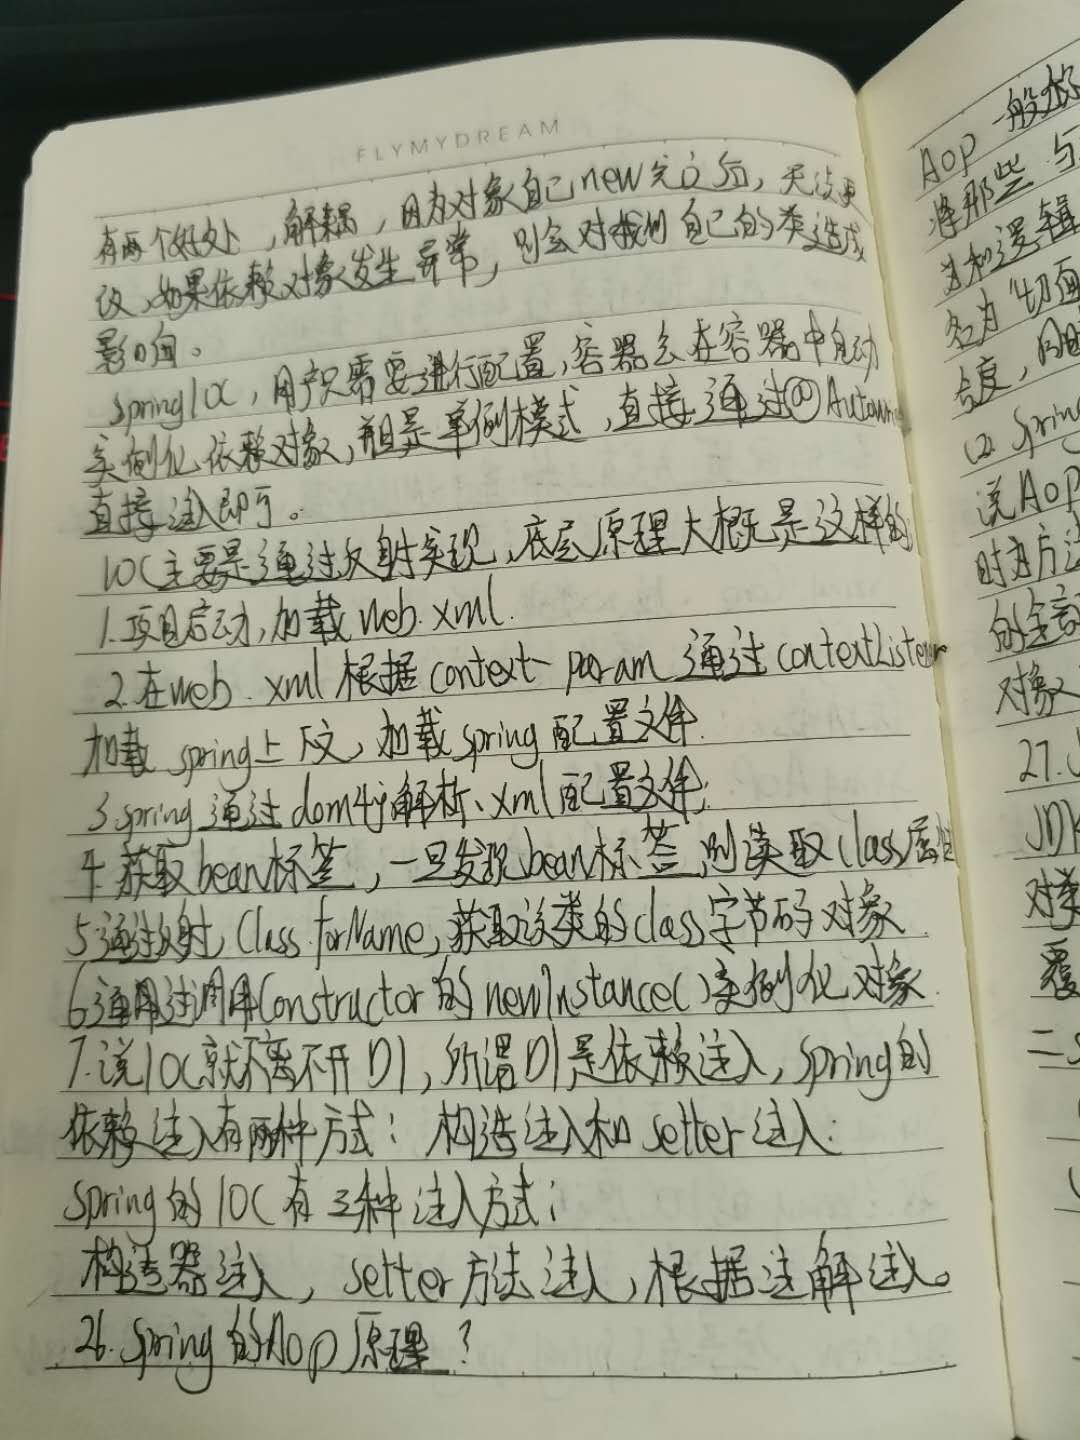 FLYMYDREAM
有两个好处，解耦，因为对象自己new完之后，无法更
改，如果依赖对象发生异常，则会对我们自己的类造成
影响。
spring IOC，用户只需要进行配置，容器会在容器中自动
实例化依赖对象，并且是单例模式，直接通过@Autowi
直接注入即可。
IOC主要是通过反射实现，底层原理大概是这样的
1.项目启动，加载web.xml.
2.在web.xml根据context-param通过contextListener
加载spring上下文，加载spring配置文件.
3.spring通过dom4j解析xml配置文件;
4.获取bean标签，一旦发现bean标签，则读取class属性
5.通过反射Class.forName，获取该类的class字节码对象.
6.通过调用Constructor的newInstance()实例化对象.
7.说IOC就不离不开DI，所谓DI是依赖注入，spring的
依赖注入有两种方式：构造注入和setter注入:
Spring的IOC有三种注入方式;
构造器注入，setter方法注入，根据注解注入。
26.Spring的Aop原理？
AOP 一般
将那些与
为和逻辑
名为"切面
合度，同时
(2) Spring
说AOP
时为方法
的全部
对象
27.
JDK
对类
覆
二